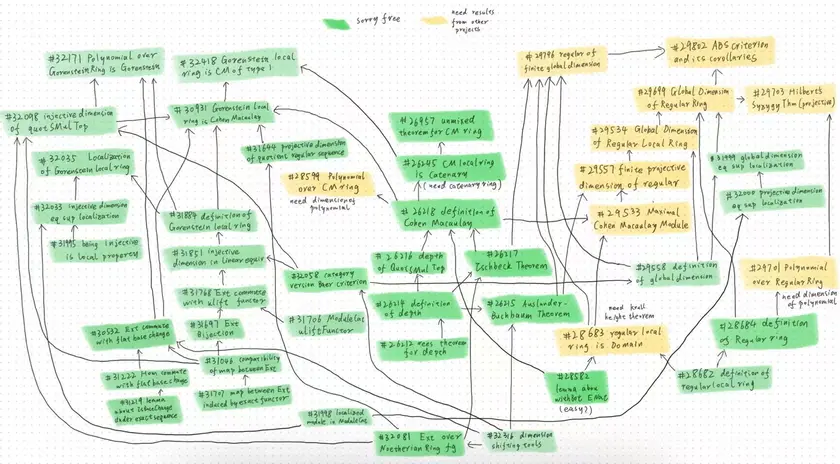 sorry free
need results
from other
projects
#32171 Polynomial over
Gorenstein Ring is Gorenstein
#32418 Gorenstein local
ring is CM of type 1
#29796 regular of
finite global dimension
#29802 ABS criterion
and its corollaries
#29699 Global Dimension
of Regular Ring
#29703 Hilbert's
Syzygy Thm (projective)
#32098 injective dimension
of quotSMulTop
#30931 Gorenstein local
ring is Cohen Macaulay
#26957 unmixed
theorem for CM ring
#29534 Global Dimension
of Regular Local Ring
#31644 projective dimension
of quotient regular sequence
#26245 CM local ring
is Catenary
(need catenary ring)
#32035 Localization
of Gorenstein local ring
#28599 Polynomial
over CM ring
need dimension of
polynomial
#29557 finite projective
dimension of regular
global dimension
eq sup localization
#32000 projective dimension
eq sup localization
#32033 injective dimension
eq sup localization
#31884 definition of
Gorenstein local ring
#26218 definition of
Cohen Macaulay
#29533 Maximal
Cohen Macaulay Module
#31995 being injective
is local property
#31851 injective
dimension in linear equiv
#26216 depth of
QuotSMulTop
#26217
Ischbeck Theorem
#32058 category
version Baer criterion
#29558 definition
of global dimension
#29701 Polynomial
over Regular Ring
need dimension
of polynomial
#31768 Ext commute
with ulift functor
#26214 definition
of depth
#26215 Auslander-
Buchbaum Theorem
#31706 ModuleCat
uliftFunctor
need krull
height theorem
#30532 Ext commute
with flat base change
#31697 Ext
Bijection
#26212 rees theorem
for depth
#28683 regular local
ring is Domain
#28684 definition
of Regular ring
#31046 compatibility
of map between Ext
#31222 Hom commute
with flat base change
#28582
lemma above
(easy?)
#28682 definition of
regular local ring
#31219 lemma
under exact sequence
#31707 map between Ext
induced by exact functor
#31998 localized
module in ModuleCat
#32081 Ext over
Noetherian Ring fg
#32316 dimension
shifting tools